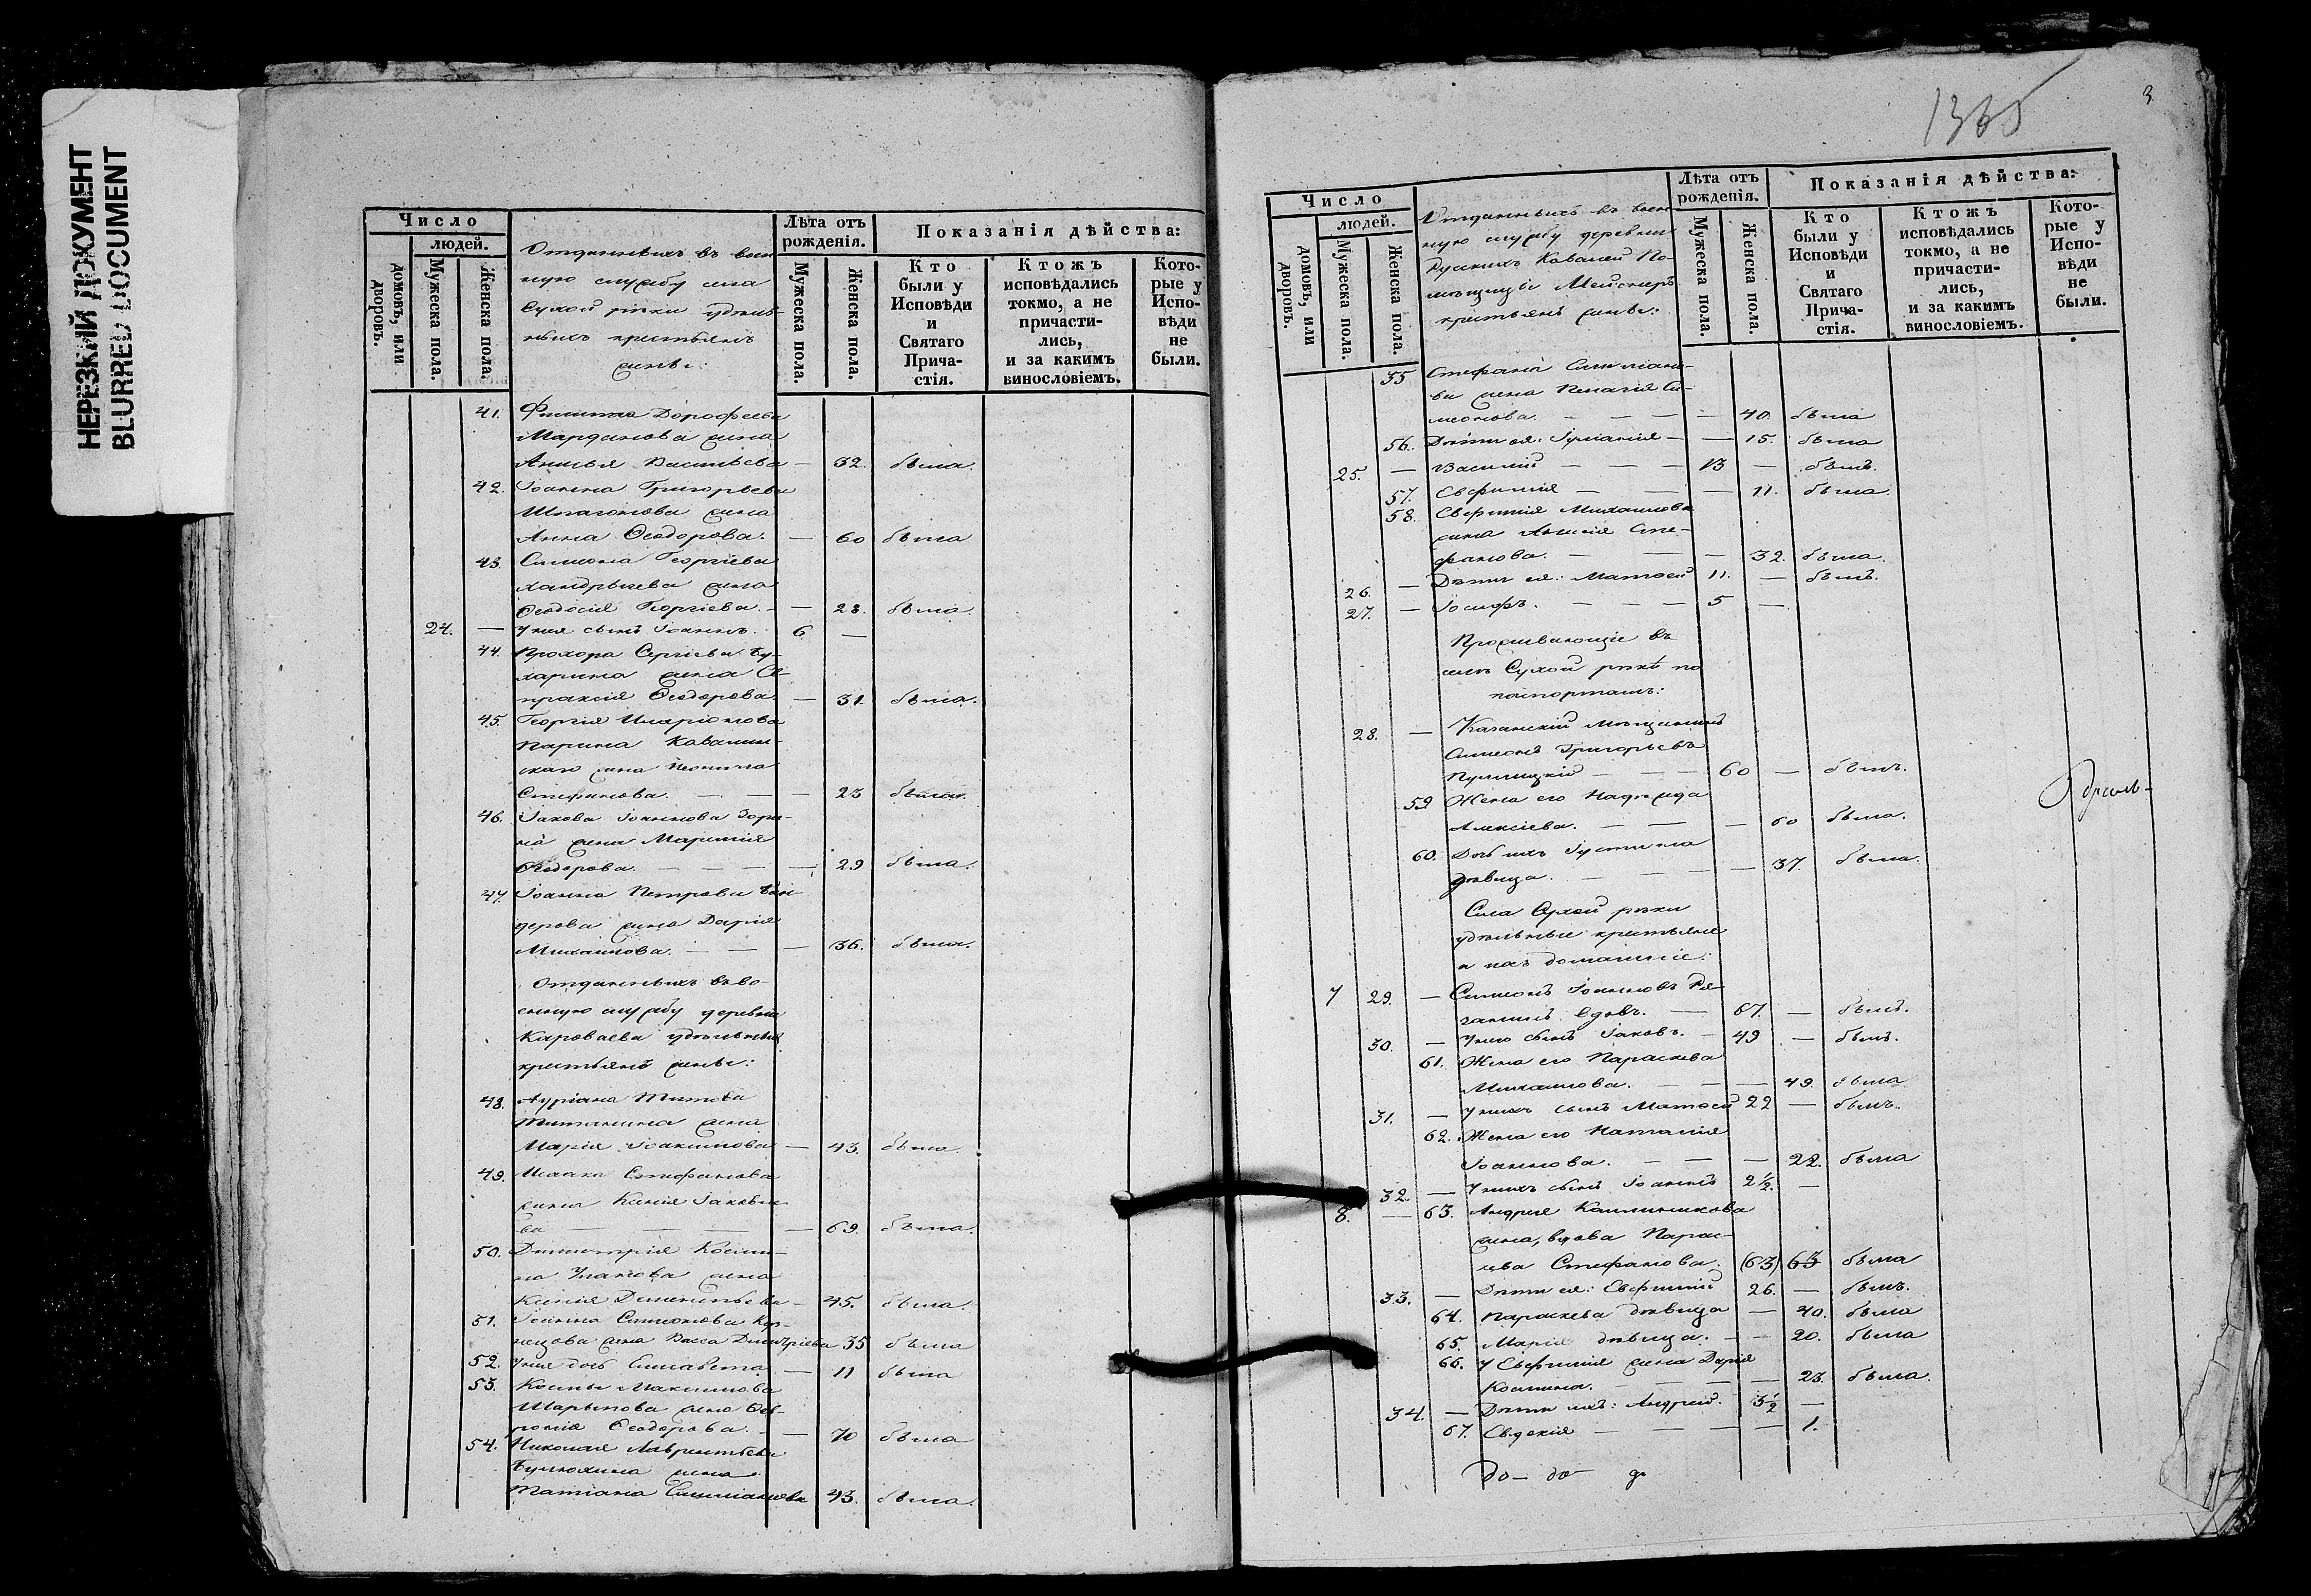 НЕРЕЗКИЙ ДОКУМЕНТ
BLURRED DOCUMENT
Число
людей.
домовъ, или дворовъ.
Мужеска пола.
Женска пола.
Отданныхъ въ воен
ную службу села
Сухой рѣки удѣль-
ныхъ крестьянъ
жены:
Лѣта отъ
рожденія.
Мужеска пола.
Женска пола.
Показанія дѣйства:
Кто
были у
Исповѣди
и
Святаго
Прича-
стія.
Ктожъ
исповѣдались
токмо, а не
причасти-
лись,
и за какимъ
винословіемъ.
Кото-
рые у
Испо-
вѣди
не
были.
41. Филиппа Дорофеева
Марданова жена
Анисья Васильева — 32. была.
42. Іоанна Григорьева
жена
Анна Ѳеодорова. — 60 была
43. Симеона Георгіева
жена
Ѳеодосія Георгіева. — 28. была.
24. — У нея сынъ Іоаннъ. 6 —
44. Прохора Сергіева Бу-
харина жена Ев-
праксія Ѳеодорова. — 31. была.
45. Георгія Иларіонова
Ларина Кавалин-
скаго жена Неонила
Стефанова. — — — 23 была.
46. Іакова Іоаннова Зори-
на жена Марина
Ѳеодорова. — — — 29 была.
47. Іоанна Петрова Бон-
дерова жена Дарія
Михаилова. — — — 36. была.
Отданныхъ въ во-
енную службу деревни
Кароваева удѣльныхъ
крестьянъ жены:
48. Адріана Титова
Титанина жена
Марія Іоакимова — 43. была.
49. Исаака Стефанова
жена Ксенія Іаковле-
ва — — — — 69. была.
50. Димитрія Косми-
на Уланова жена
Ксенія Дементьева — 45. была.
51. Іоанна Симеонова Куз-
нецова жена Васса Димитріева 35 была
52. У нея дочь Елисавета — 11 была
53. Космы Максимова
Шарыпова жена Фев-
ронія Ѳеодорова. — 70 была
54. Николая Лаврентьева
Бумохина жена
Татіана Емиліанова 43. была.
1365
3
Число
людей.
домовъ, или дворовъ.
Мужеска пола.
Женска пола.
Отданныхъ въ воен
ную службу деревни
Русскихъ Кавалей По-
мѣщицы Мейснеръ
крестьянъ жены:
Лѣта отъ
рожденія.
Мужеска пола.
Женска пола.
Показанія дѣйства:
Кто
были у
Исповѣди
и
Святаго
Прича-
стія.
Ктожъ
исповѣдались
токмо, а не
причасти-
лись,
и за какимъ
винословіемъ.
Кото-
рые у
Испо-
вѣди
не
были.
55 Стефана Емиліано-
ва жена Пелагія Си-
меонова. — — — — 40. была
56. Дѣти ея: Іуліанія — — 15. была
25. — Василій — — — 13 — былъ.
57. Евфимія — — — 11. была.
58. Евфимія Михаилова
жена Анисія Сте-
фанова. — — — 32. была.
26. — Дѣти ея: Матѳей 11. — былъ.
27. — Іосифъ. — — — 5 —
Проживающіе въ
селѣ Сухой рѣкѣ по
паспортамъ:
28. — Казанскій мѣщанинъ
Симеонъ Григорьевъ
— — — 60 — былъ.
59 Жена его Надежда
Алексіева. — — — 60 была.
60. Дочь ихъ Іустина
дѣвица. — — — — 37. была.
Села Сухой рѣки
удѣльные крестьяне
и ихъ домашніе:
7 29. — Симеонъ Іоанновъ Ря-
занинъ вдовъ. — 67. — былъ.
30. — У него сынъ Іаковъ. — 49 — былъ.
61. Жена его Параскева
Михаилова. — — — 49. была
31. — У нихъ сынъ Матѳей 22 — былъ.
62. Жена его Наталія
Іоаннова. — — — 22. была
32. — У нихъ сынъ Іоаннъ 2½. —
8. — 63. Андрея Калинникова
жена, вдова Парас-
кева Стефанова. (63) 63 была
33. — Дѣти ея: Евфимій 26. — былъ.
64. Параскева дѣвица — 40. была
65. Марія дѣвица. — — 20. была
66. У Евфимія жена Дарія
Космина. — — — — 23. была.
34. — Дѣти ихъ: Андрей. 3½ —
67. Евдокія — — — — 1.
До — до — до